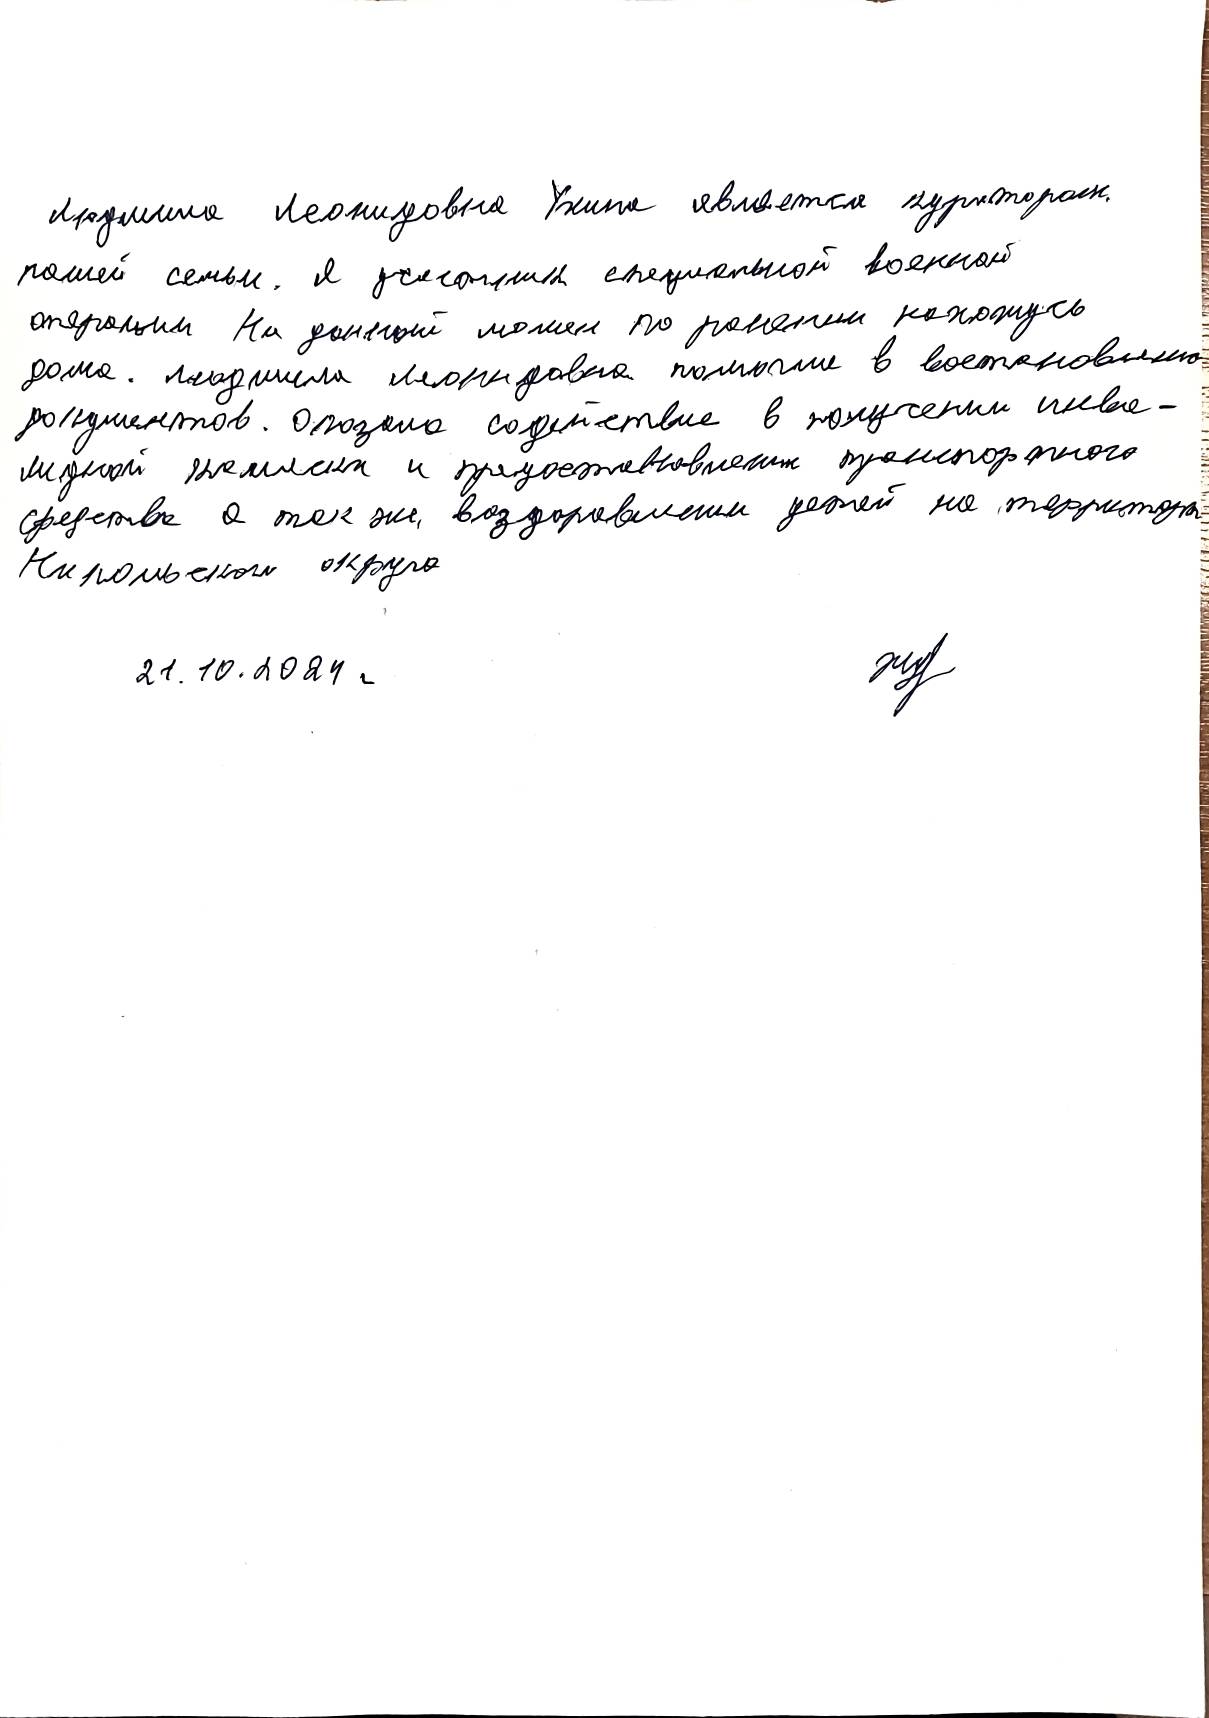 Людмила Леонидовна Ужина является куратором.
нашей семьи. Я участник специальной военной
операции На данный момен по ранении нахожусь
дома. Людмила Леонидовна помогла в востановлению
документов. Оказала содействие в получении инва-
лидной коляски и транспортного
средства а так же, воздоравлении детей на территори
Никольском округа
21.10.2024 г